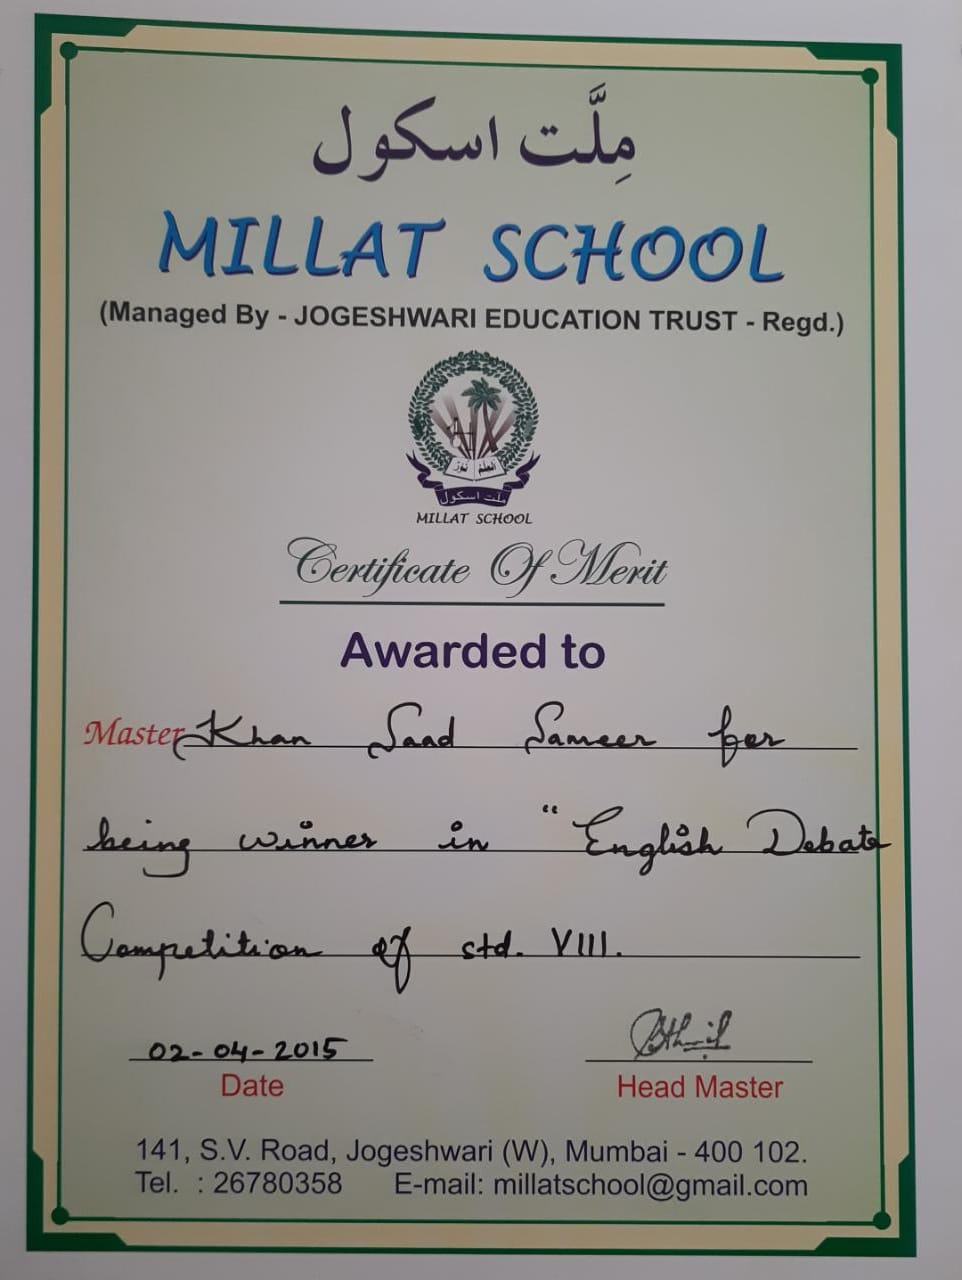 مِلَّت اسکول
MILLAT SCHOOL
(Managed By - JOGESHWARI EDUCATION TRUST - Regd.)
العِلمُ نُورٌ
ملّت اسکول
MILLAT SCHOOL
Certificate Of Merit
Awarded to
Master Khan Saad Sameer for
being winner in "English Debate
Competition of std. VIII.
02-04-2015
Date
Head Master
141, S.V. Road, Jogeshwari (W), Mumbai - 400 102.
Tel. : 26780358 E-mail: millatschool@gmail.com